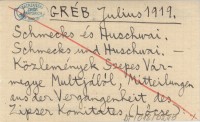 GRÉB Julius 1919.
Schmecks és Huschwai.
Schmecks und Huschwai. —
Közlemények Szepes Vár-
megye Multjából Mitteilungen
aus der Vergangenheit des
Zipser Komitates Lőcse.